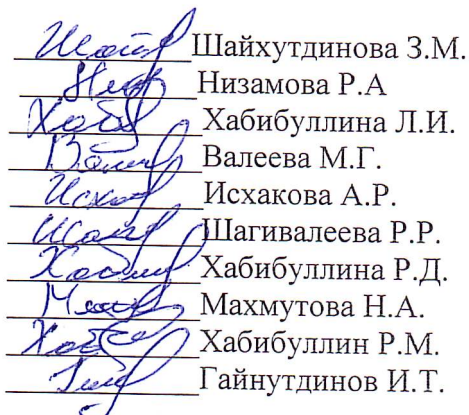 Шайхутдинова З.М.
Низамова Р.А
Хабибуллина Л.И.
Валеева М.Г.
Исхакова А.Р.
Шагивалеева Р.Р.
Хабибуллина Р.Д.
Махмутова Н.А.
Хабибуллин Р.М.
Гайнутдинов И.Т.